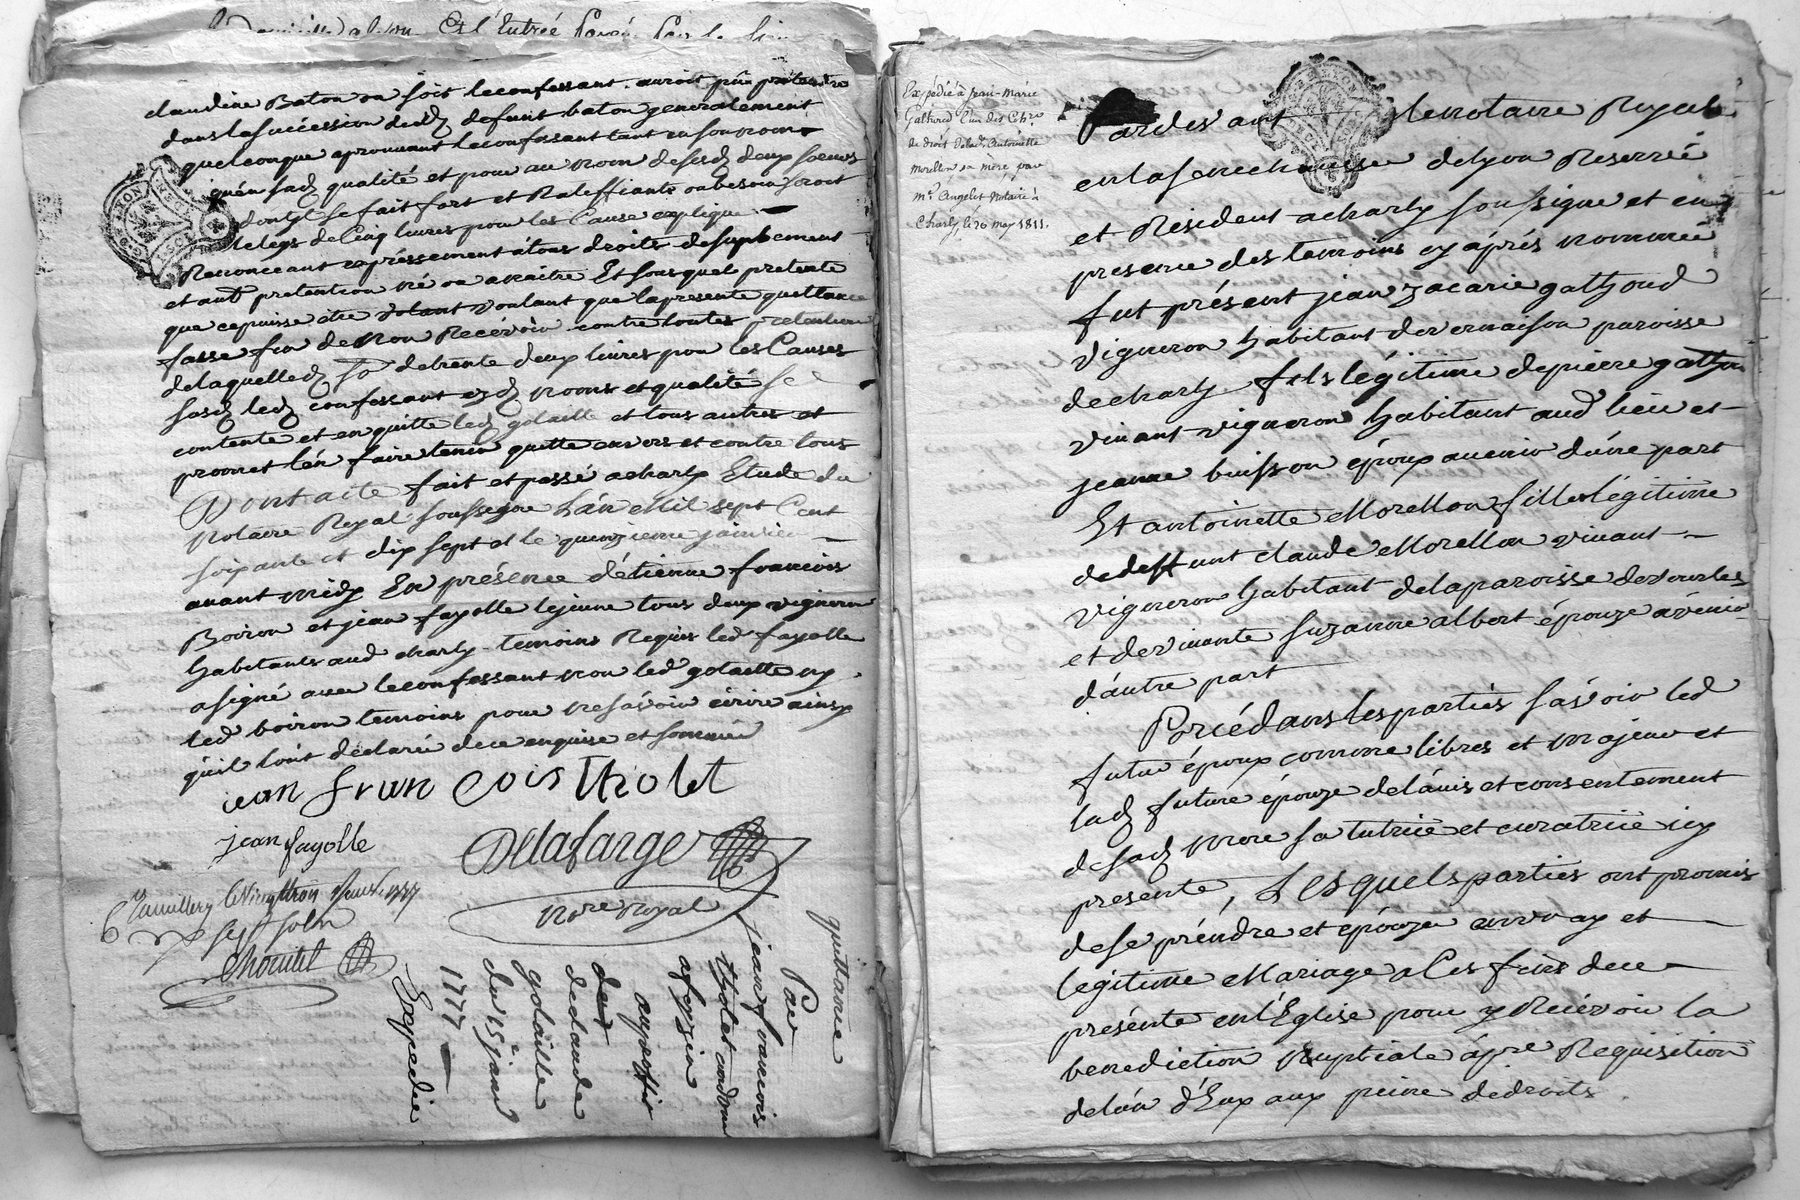 claudine Baton ou soit le confessant auroit pû pretendre
dans la succession dud defunt baton generalement
quelconque aprouvant le confessant tant en son nom
qu'en sad qualité et pour au nom desesd deux soeurs
dont il se fait fort et Raleffiante au besoin seroit
le legs de Cinq livres pour les Cause expliqué
Renonceant expréssement a tous droits desuplement
et autre pretention né ou a naitre Et sous quel pretexte
que ce puisse être voulant que la presente quittance
fasse fin de Non Recévoir contre toutes pretentions
de laquelled so de trente deux livres pour les Causes
susd led confessant ezd noms et qualité se
contente et en quitte led golaille et tous autres et
promet l'en faire tenir quitte envers et contre tous
Dont acte fait et passé a charly Etude du
Notaire Royal soussigné L'an Mil sept Cent
soixante et dix sept et le quinzieme janvier
avant midy En présence d'étienne francois
Boiron et jean fayolle lejeune tous deux vignerons
habitants aud charly temoins Requis led fayolle
a signé avec le confessant non led golaille ny
led boiron temoins pour ne sávoir écrire ainsy
qu'il l'ont declaré de ce enquis et sommés
jean francois thiolet
Jean fayolle
Delafarge
No.re Royal
1777
sept sols
quittance
Par
jean francois
thiolet
a feyzin
au proffit
de claude
golaille
du 15 janv
1777
Expediée
Expédié à Jean-Marie
Gathoud l'un des
de droit de lad. Antoinette
Morellon sa mère par
M.e Angelot Notaire à
Charly, le 20 may 1811.
Pardevant le notaire Royal
en la senechaussée de Lyon Reservé
et Résident a charly soussigné et en
presence des temoins cy aprés nommés
fut présent jean zacarie gathoud
vigneron habitant de vernaison paroisse
de charly fils légitime de pierre gathoud
vivant vigneron habitant aud lieu et
jeanne buisson époux avenir d'úne part
Et antoinette Morellon fille légitime
de deffunt claude Morellon vivant
vigneron habitant de la paroisse de vourles
et de vivante suzanne albert épouze avénir
d'áutre part
Procédans les parties sávoir led
futur époux comme libres et majeur et
lad future épouze de l'ávis et consentement
de sad mere sa tutrice et curatrice icy
presente, Lesquels parties ont promis
de se préndre et épouzer en vray et
legitime Mariage a Ces fins de ce
présenter en l'Eglise pour y Recévoir la
benediction Nuptiale ápre Requisition
de l'ún d'Eux aux peine de droits